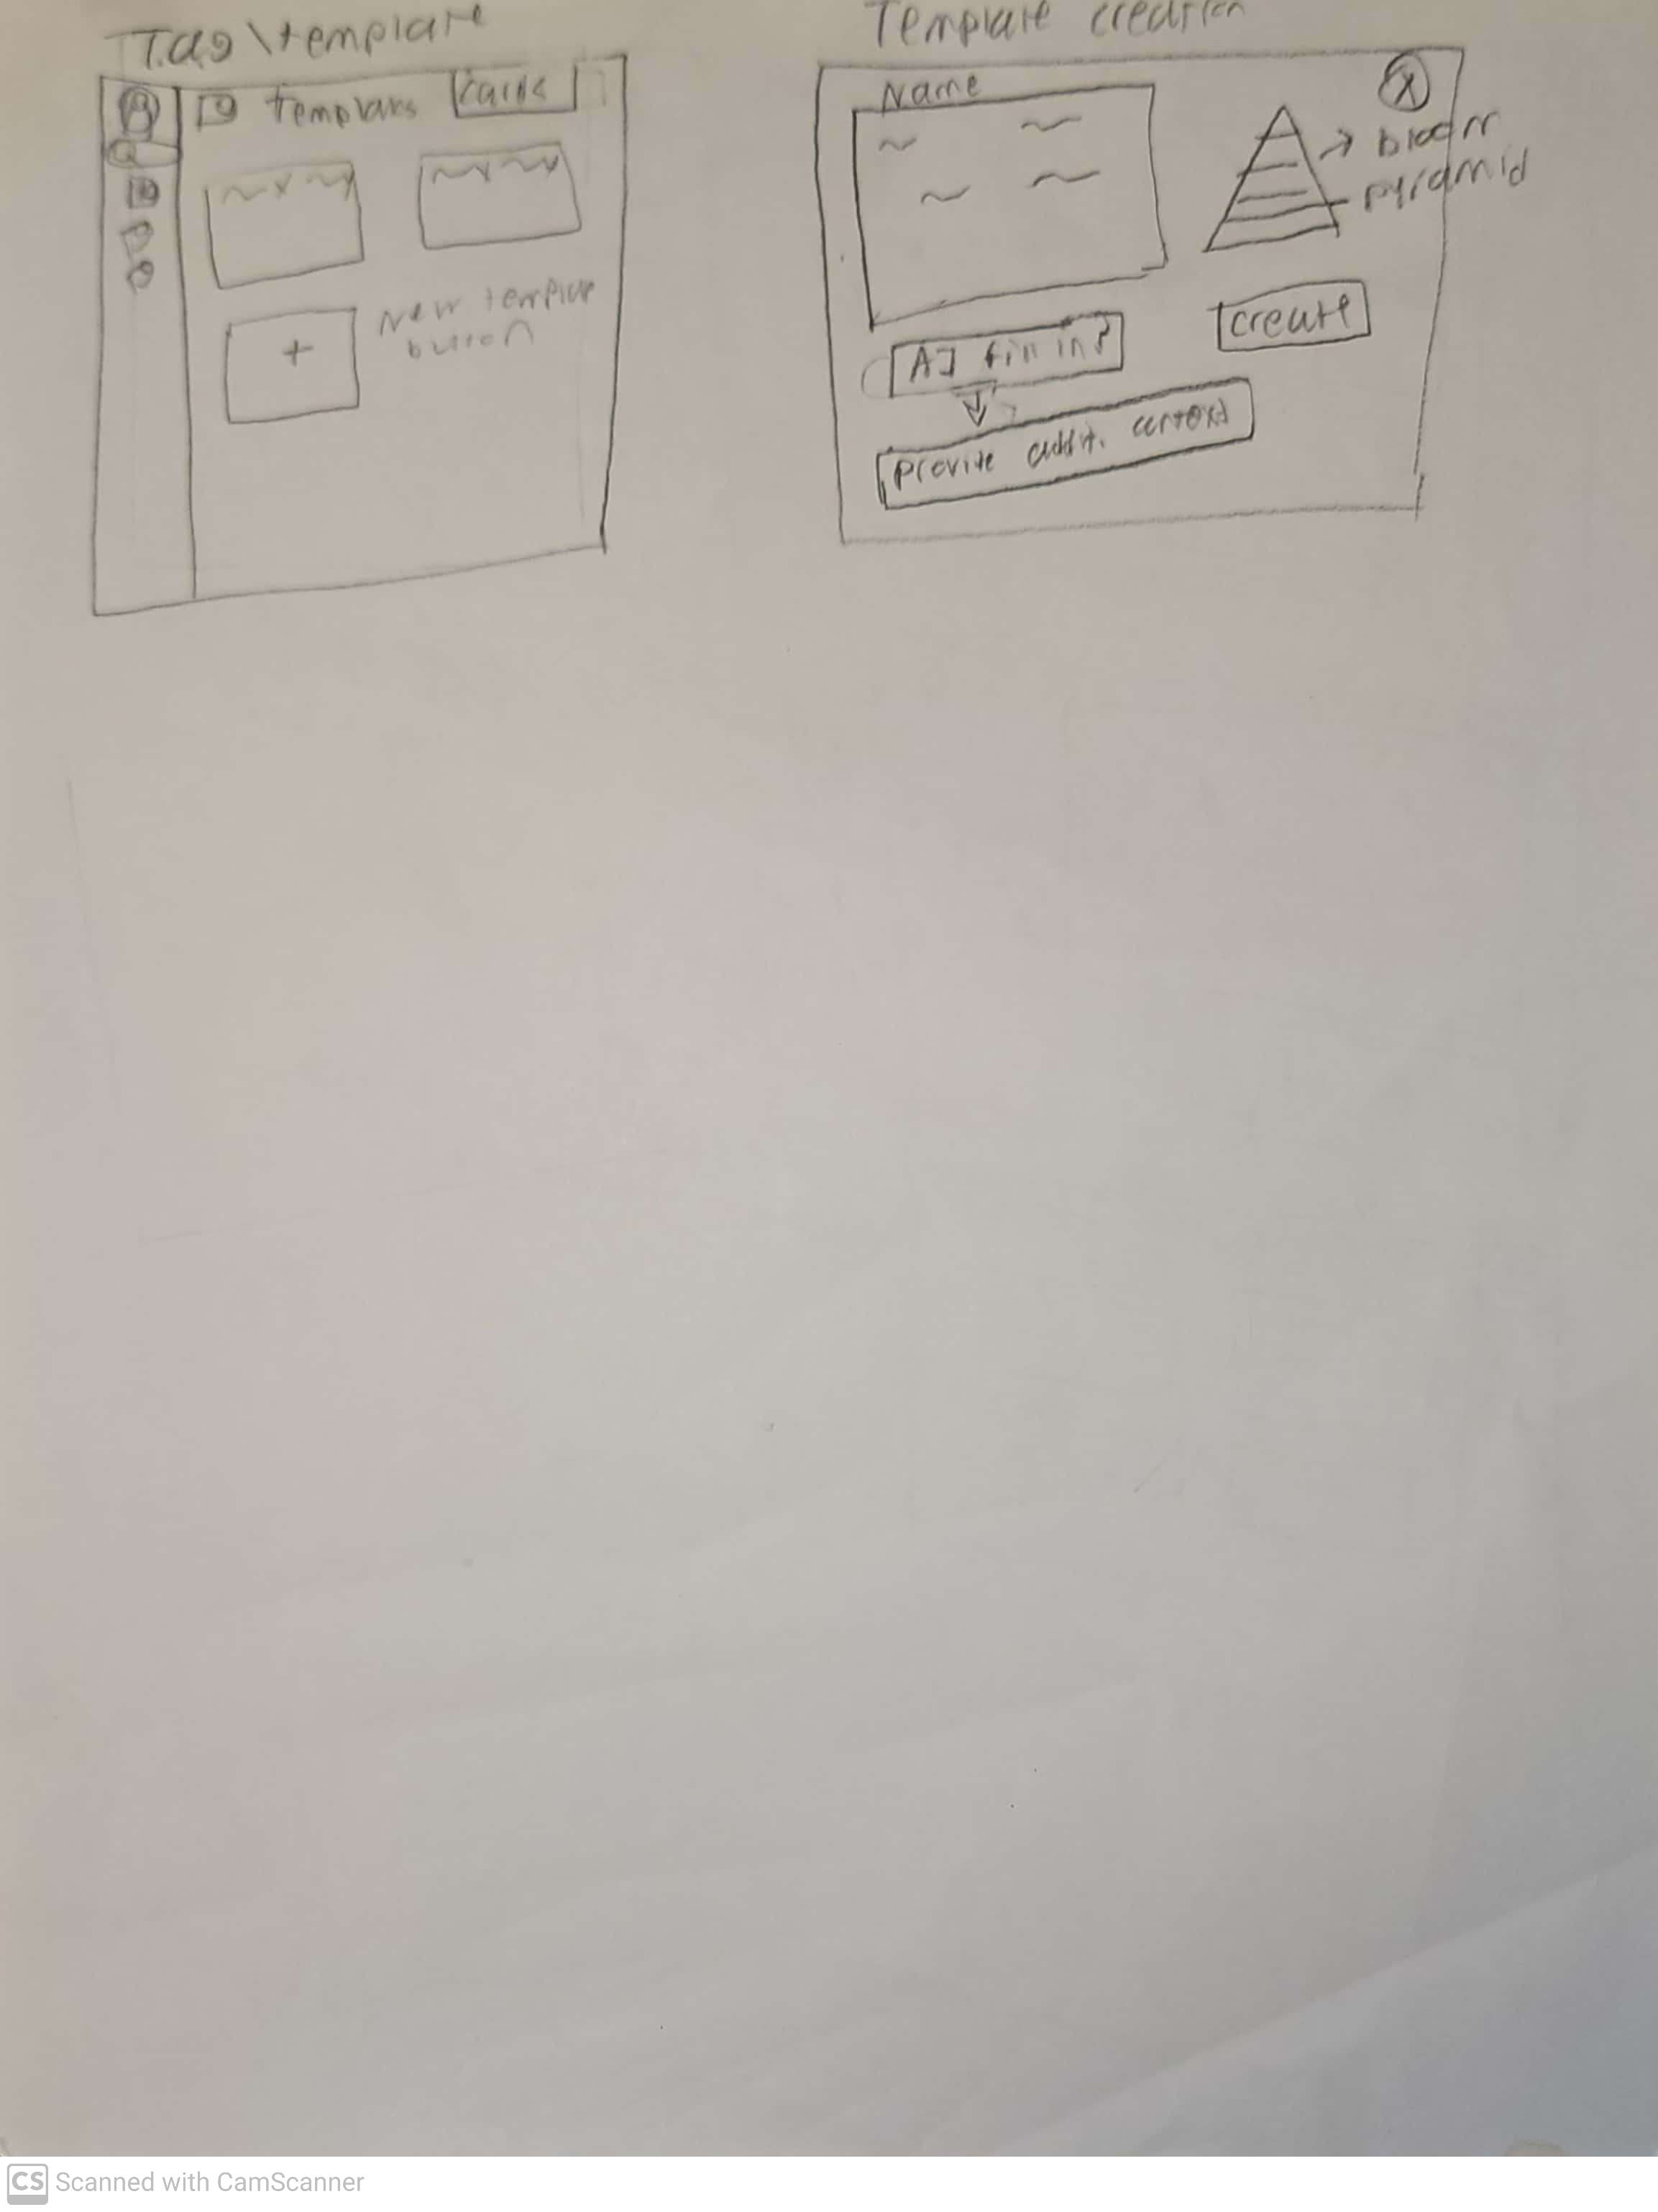 Tag \ template
templates
cards
+
New template
button
Template creation
Name
X
bloom
pyramid
create
AI fill in?
provide addit. context
CS Scanned with CamScanner